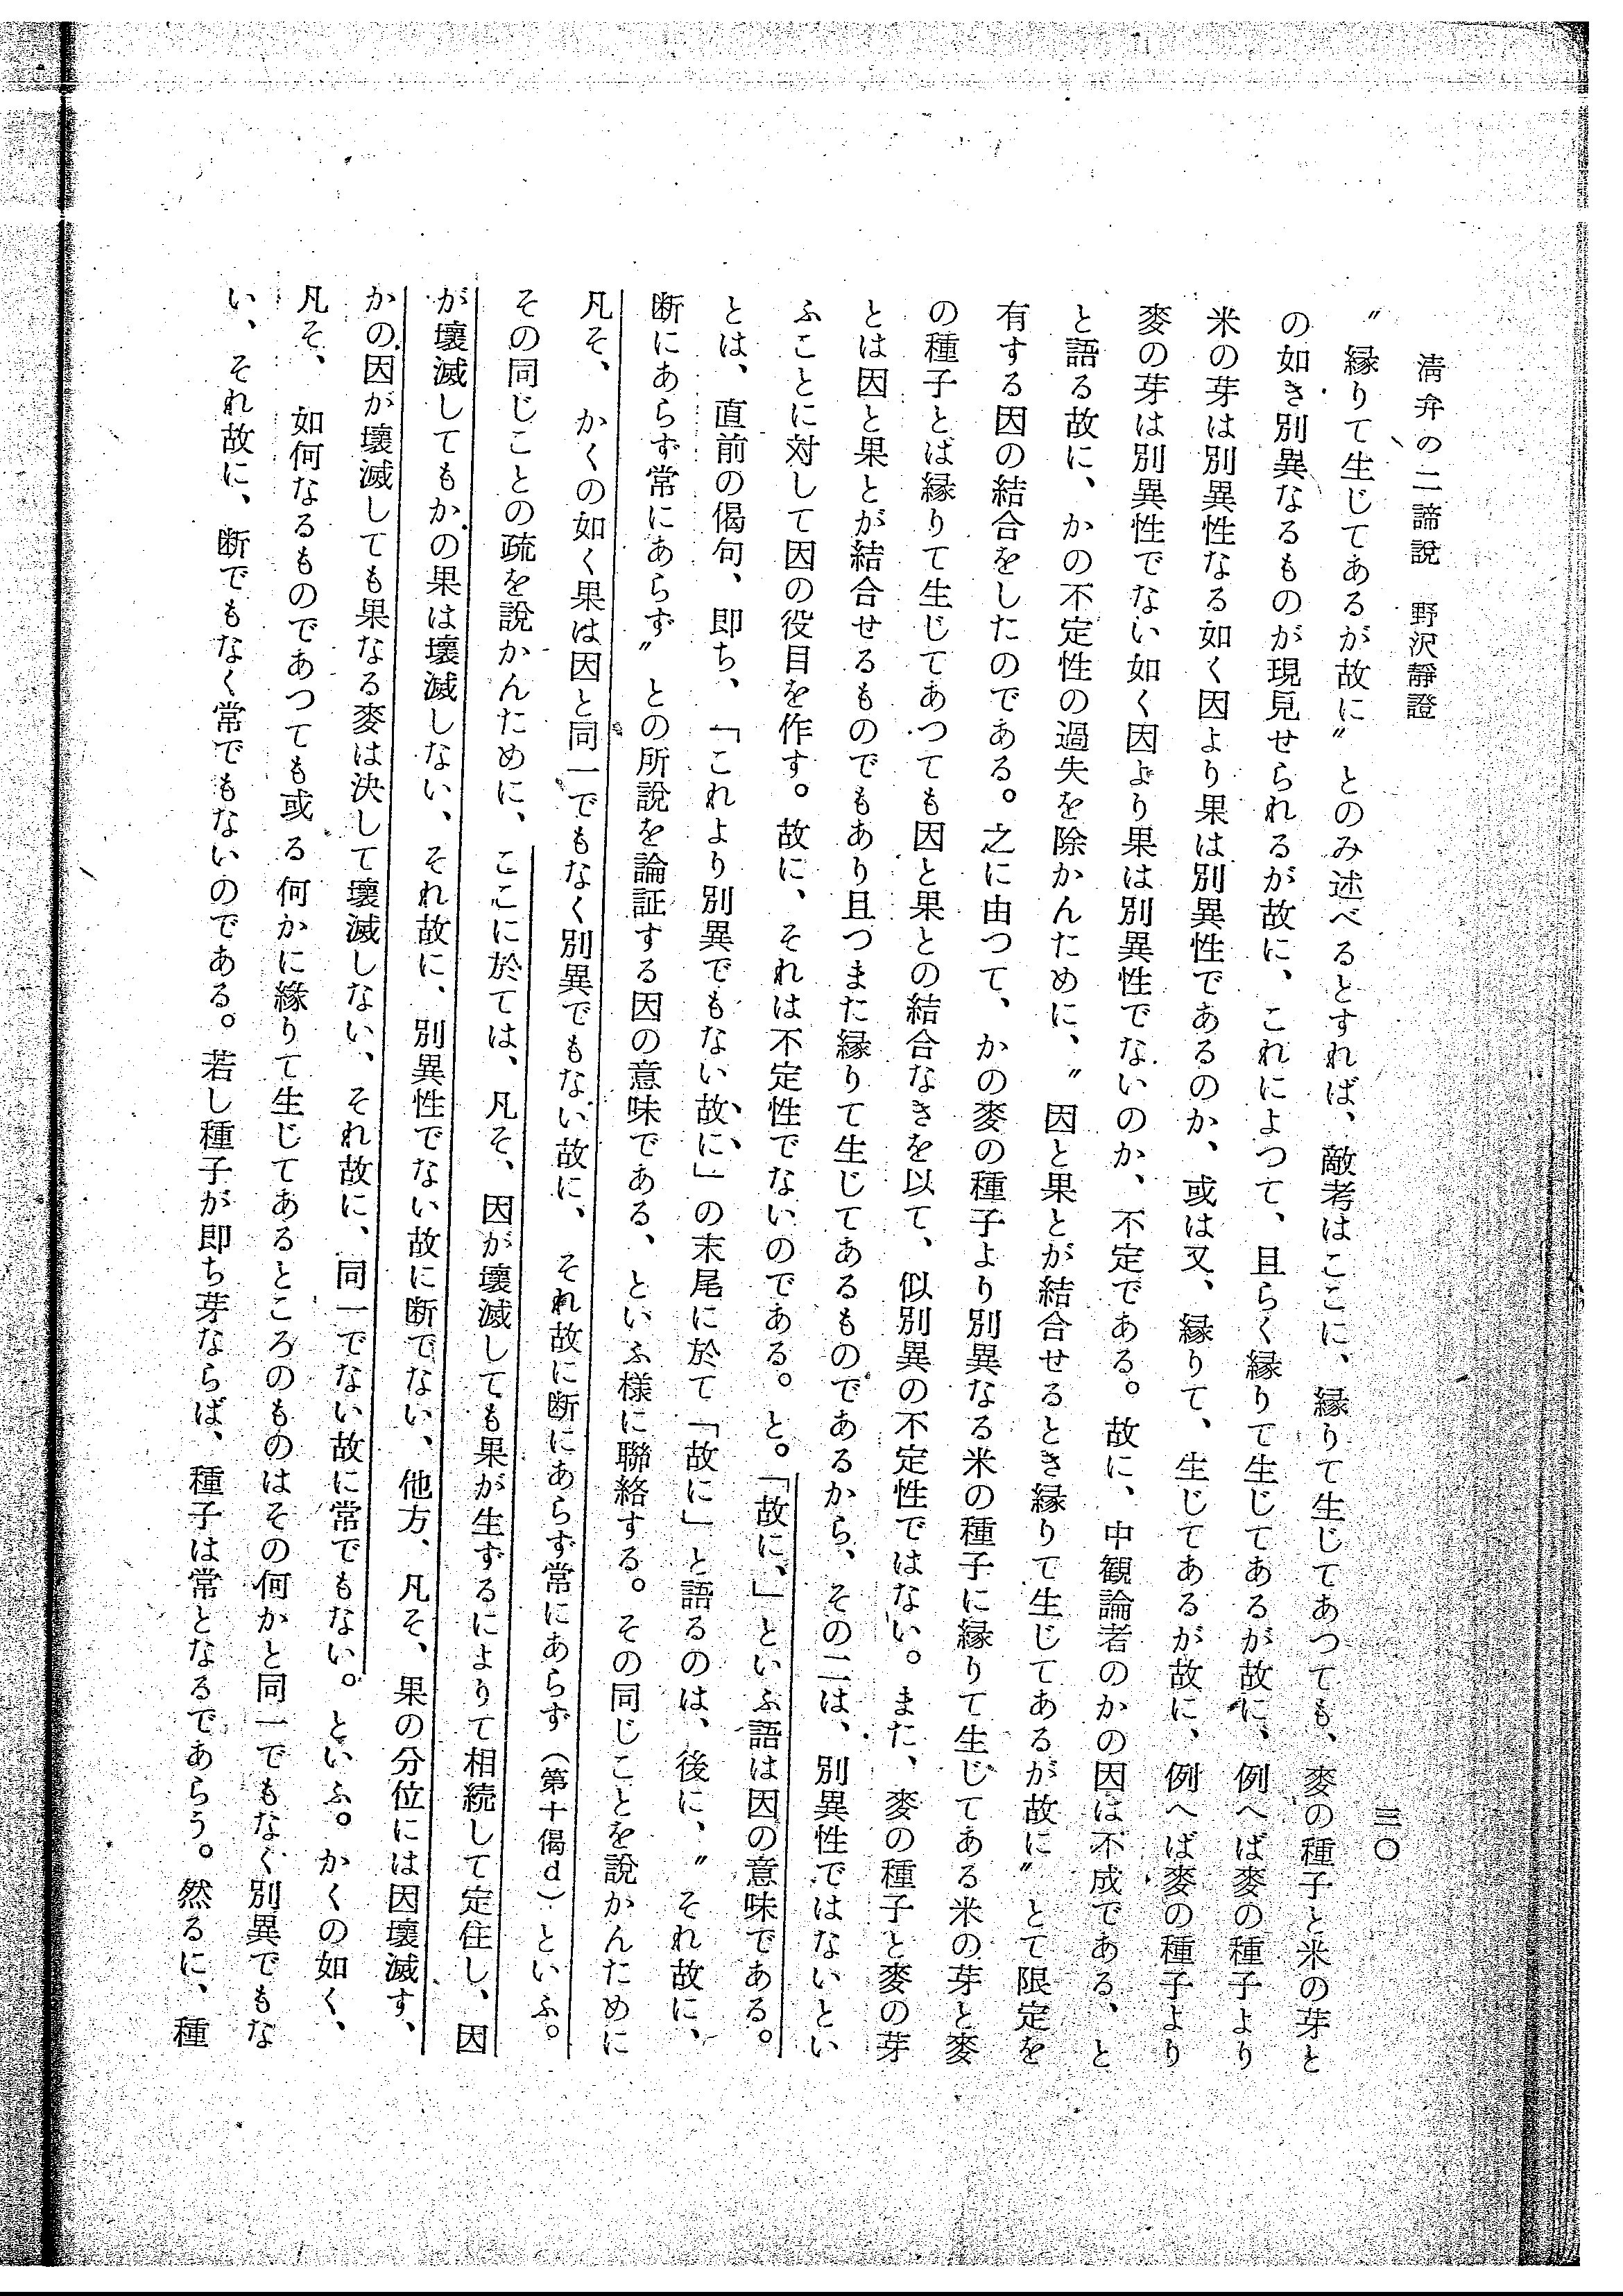 清弁の二諦説　野沢靜證
三〇
〃縁りて生じてあるが故に〃とのみ述べるとすれば、敵考はここに、縁りて生じてあつても、麥の種子と米の芽と
の如き別異なるものが現見せられるが故に、これによつて、且らく縁りて生じてあるが故に、例へば麥の種子より
米の芽は別異性なる如く因より果は別異性であるのか、或は又、縁りて、生じてあるが故に、例へば麥の種子より
麥の芽は別異性でない如く因より果は別異性でないのか、不定である。故に、中観論者のかの因は不成である、と
と語る故に、かの不定性の過失を除かんために、〃因と果とが結合せるとき縁りて生じてあるが故に〃とて限定を
有する因の結合をしたのである。之に由つて、かの麥の種子より別異なる米の種子に縁りて生じてある米の芽と麥
の種子とは縁りて生じてあつても因と果との結合なきを以て、似別異の不定性ではない。また、麥の種子と麥の芽
とは因と果とが結合せるものでもあり且つまた縁りて生じてあるものであるから、その二は、別異性ではないとい
ふことに対して因の役目を作す。故に、それは不定性でないのである。と。「故に、」といふ語は因の意味である。
とは、直前の偈句、即ち、「これより別異でもない故に」の末尾に於て「故に」と語るのは、後に、〃それ故に、
断にあらず常にあらず〃との所説を論証する因の意味である、といふ様に聯絡する。その同じことを説かんために
凡そ、かくの如く果は因と同一でもなく別異でもない故に、それ故に断にあらず常にあらず（第十偈ｄ）といふ。
その同じことの疏を説かんために、ここに於ては、凡そ、因が壊滅しても果が生ずるによりて相続して定住し、因
が壊滅してもかの果は壊滅しない、それ故に、別異性でない故に断でない、他方、凡そ、果の分位には因壊滅す、
かの因が壊滅しても果なる麥は決して壊滅しない、それ故に、同一でない故に常でもない。といふ。かくの如く、
凡そ、如何なるものであつても或る何かに縁りて生じてあるところのものはその何かと同一でもなく別異でもな
い、それ故に、断でもなく常でもないのである。若し種子が即ち芽ならば、種子は常となるであらう。然るに、種